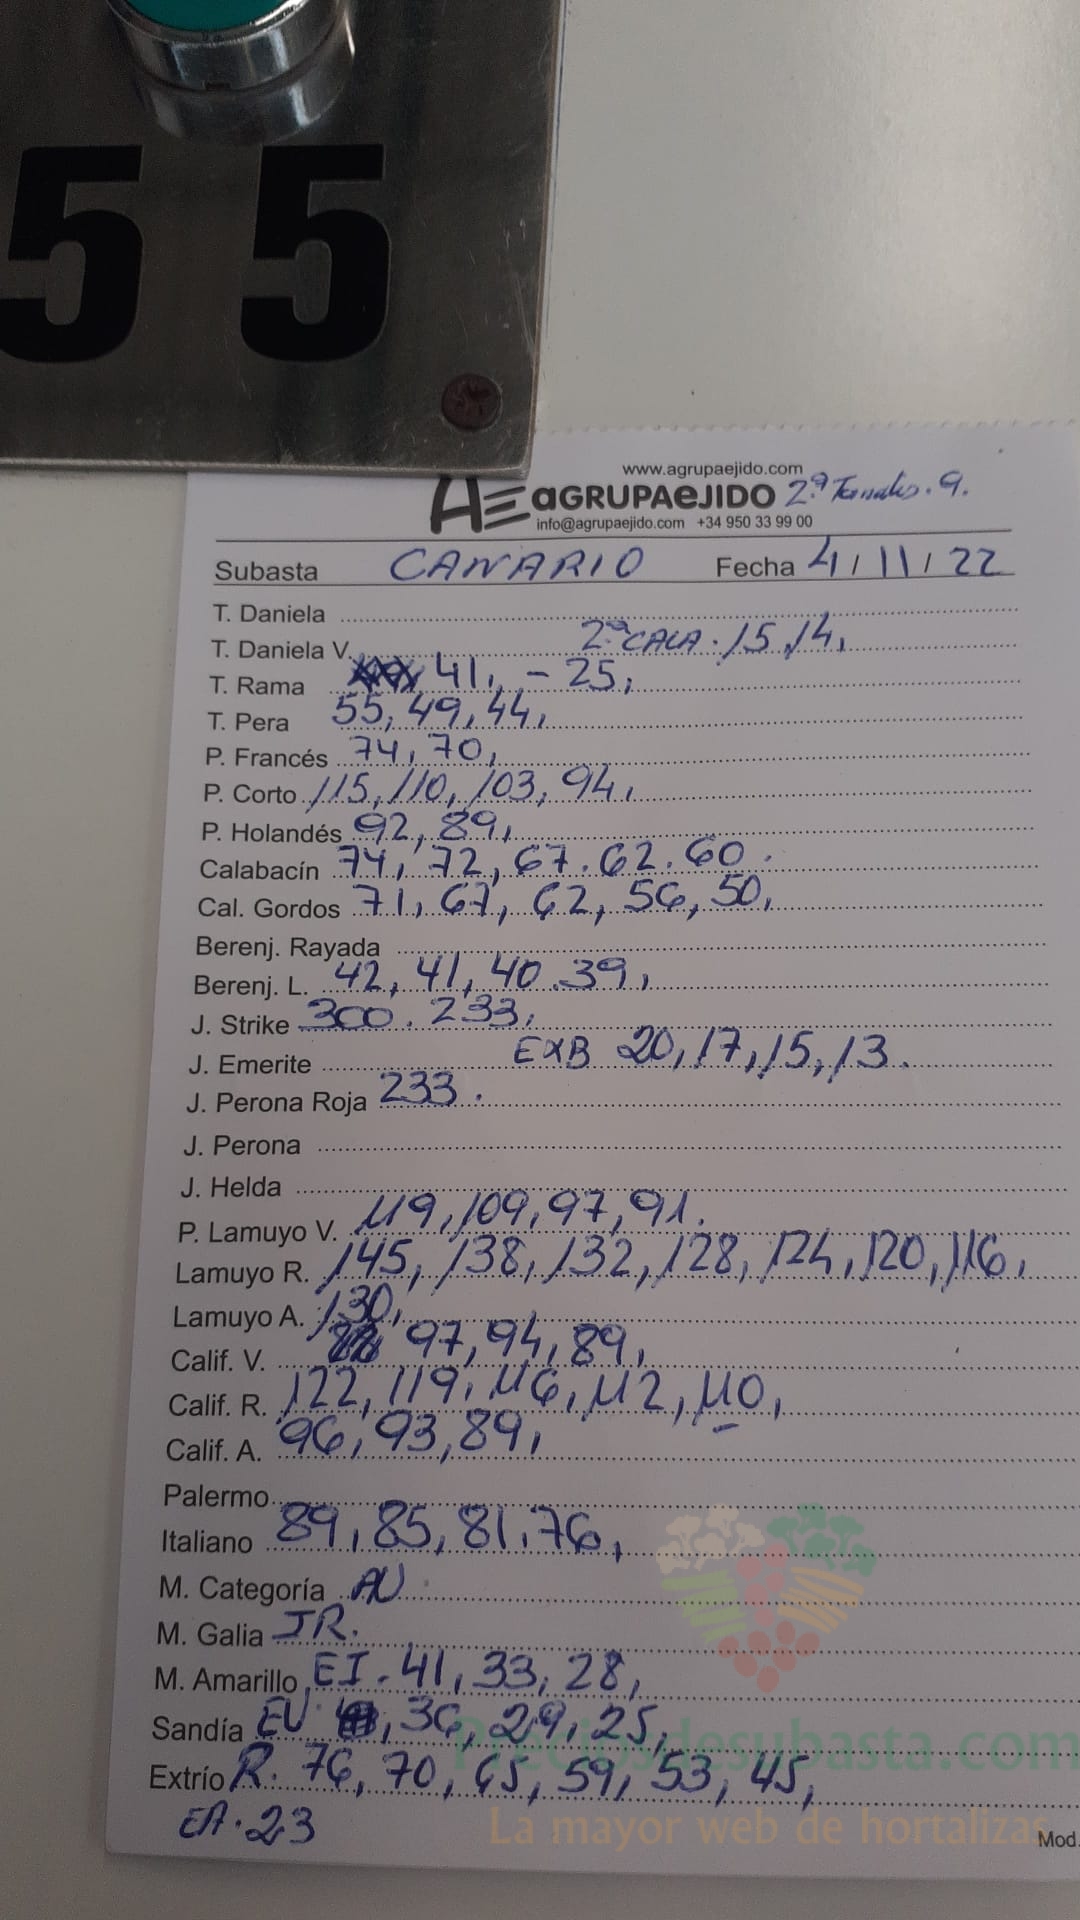 55
www.agrupaejido.com
AE aGRUPAeJIDO 2ª
info@agrupaejido.com +34 950 33 99 00
Subasta CANARIO Fecha 4/11/22
T. Daniela
T. Daniela V. 2ª CALA. 15, 14,
T. Rama 41, - 25,
T. Pera 55, 49, 44,
P. Francés 74, 70,
P. Corto 115, 110, 103, 94,
P. Holandés 92, 89,
Calabacín 74, 72, 67. 62. 60.
Cal. Gordos 71, 67, 62, 56, 50,
Berenj. Rayada
Berenj. L. 42, 41, 40. 39,
J. Strike 300. 233,
J. Emerite EXB 20, 17, 15, 13.
J. Perona Roja 233.
J. Perona
J. Helda
P. Lamuyo V. 119, 109, 97, 91.
Lamuyo R. 145, 138, 132, 128, 124, 120, 116,
Lamuyo A. 130,
Calif. V. 97, 94, 89,
Calif. R. 122, 119, 116, 112, 110,
Calif. A. 96, 93, 89,
Palermo
Italiano 89, 85, 81, 76,
M. Categoría AU
M. Galia JR.
M. Amarillo EI. 41, 33, 28,
Sandía EU. 36, 29, 25,
Preciosdesubasta.com
Extrío R. 76, 70, 65, 59, 53, 45,
EA. 23
La mayor web de hortalizas
Mod.